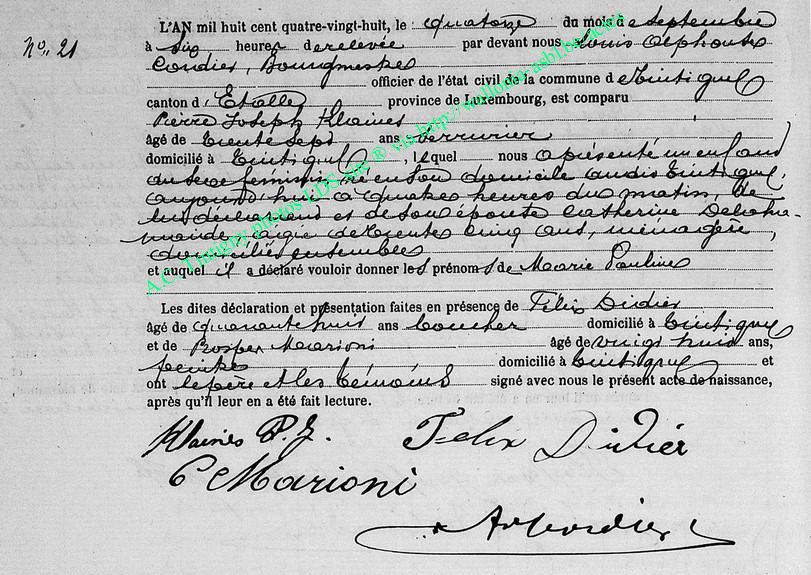 L'AN mil huit cent quatre-vingt-huit, le quatorze du mois de septembre
No. 21
à six heures de relevée par devant nous Louis Alphonse
Cordier, Bourgmestre
officier de l'état civil de la commune de Tintigny
canton d'Etalle province de Luxembourg, est comparu
Pierre Joseph Klaines
âgé de trente sept ans serrurier
domicilié à Tintigny, lequel nous a présenté un enfant
du sexe féminin, né en son domicile audit Tintigny,
aujourd'hui à quatre heures du matin, de
lui déclarant et de son épouse Catherine
âgée de trente cinq ans, ménagère,
domiciliés ensemble
et auquel il a déclaré vouloir donner les prénoms de Marie Pauline
Les dites déclaration et présentation faites en présence de Félix Didier
âgé de quarante huit ans boucher domicilié à Tintigny
et de Prosper Marioni âgé de vingt huit ans,
peintre domicilié à Tintigny et
ont le père et les témoins signé avec nous le présent acte de naissance,
après qu'il leur en a été fait lecture.
Klaines P. J. Felix Didier
P Marioni
A. Cordier